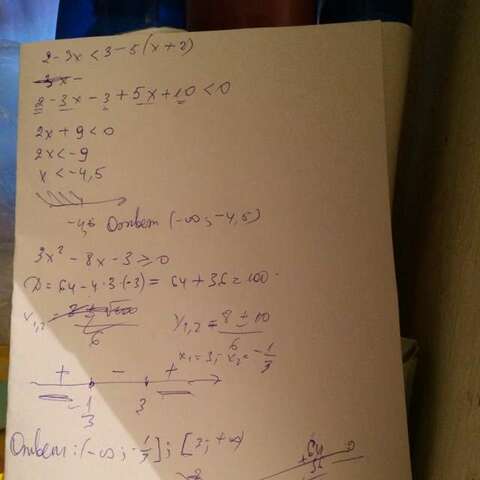 2-3x<3-5(x+2)
2-3x-3+5x+10<0
2x+9<0
2x<-9
x<-4,5
-4,5 Ответ (-∞; -4,5)
3x²-8x-3≥0
D=64-4·3·(-3)=64+36=100
x₁,₂=
x₁,₂=8±10/6
x₁=3; x₂=-1/3
+ - +
-1/3 3
Ответ: (-∞; -1/3]; [3; +∞)
+64
36